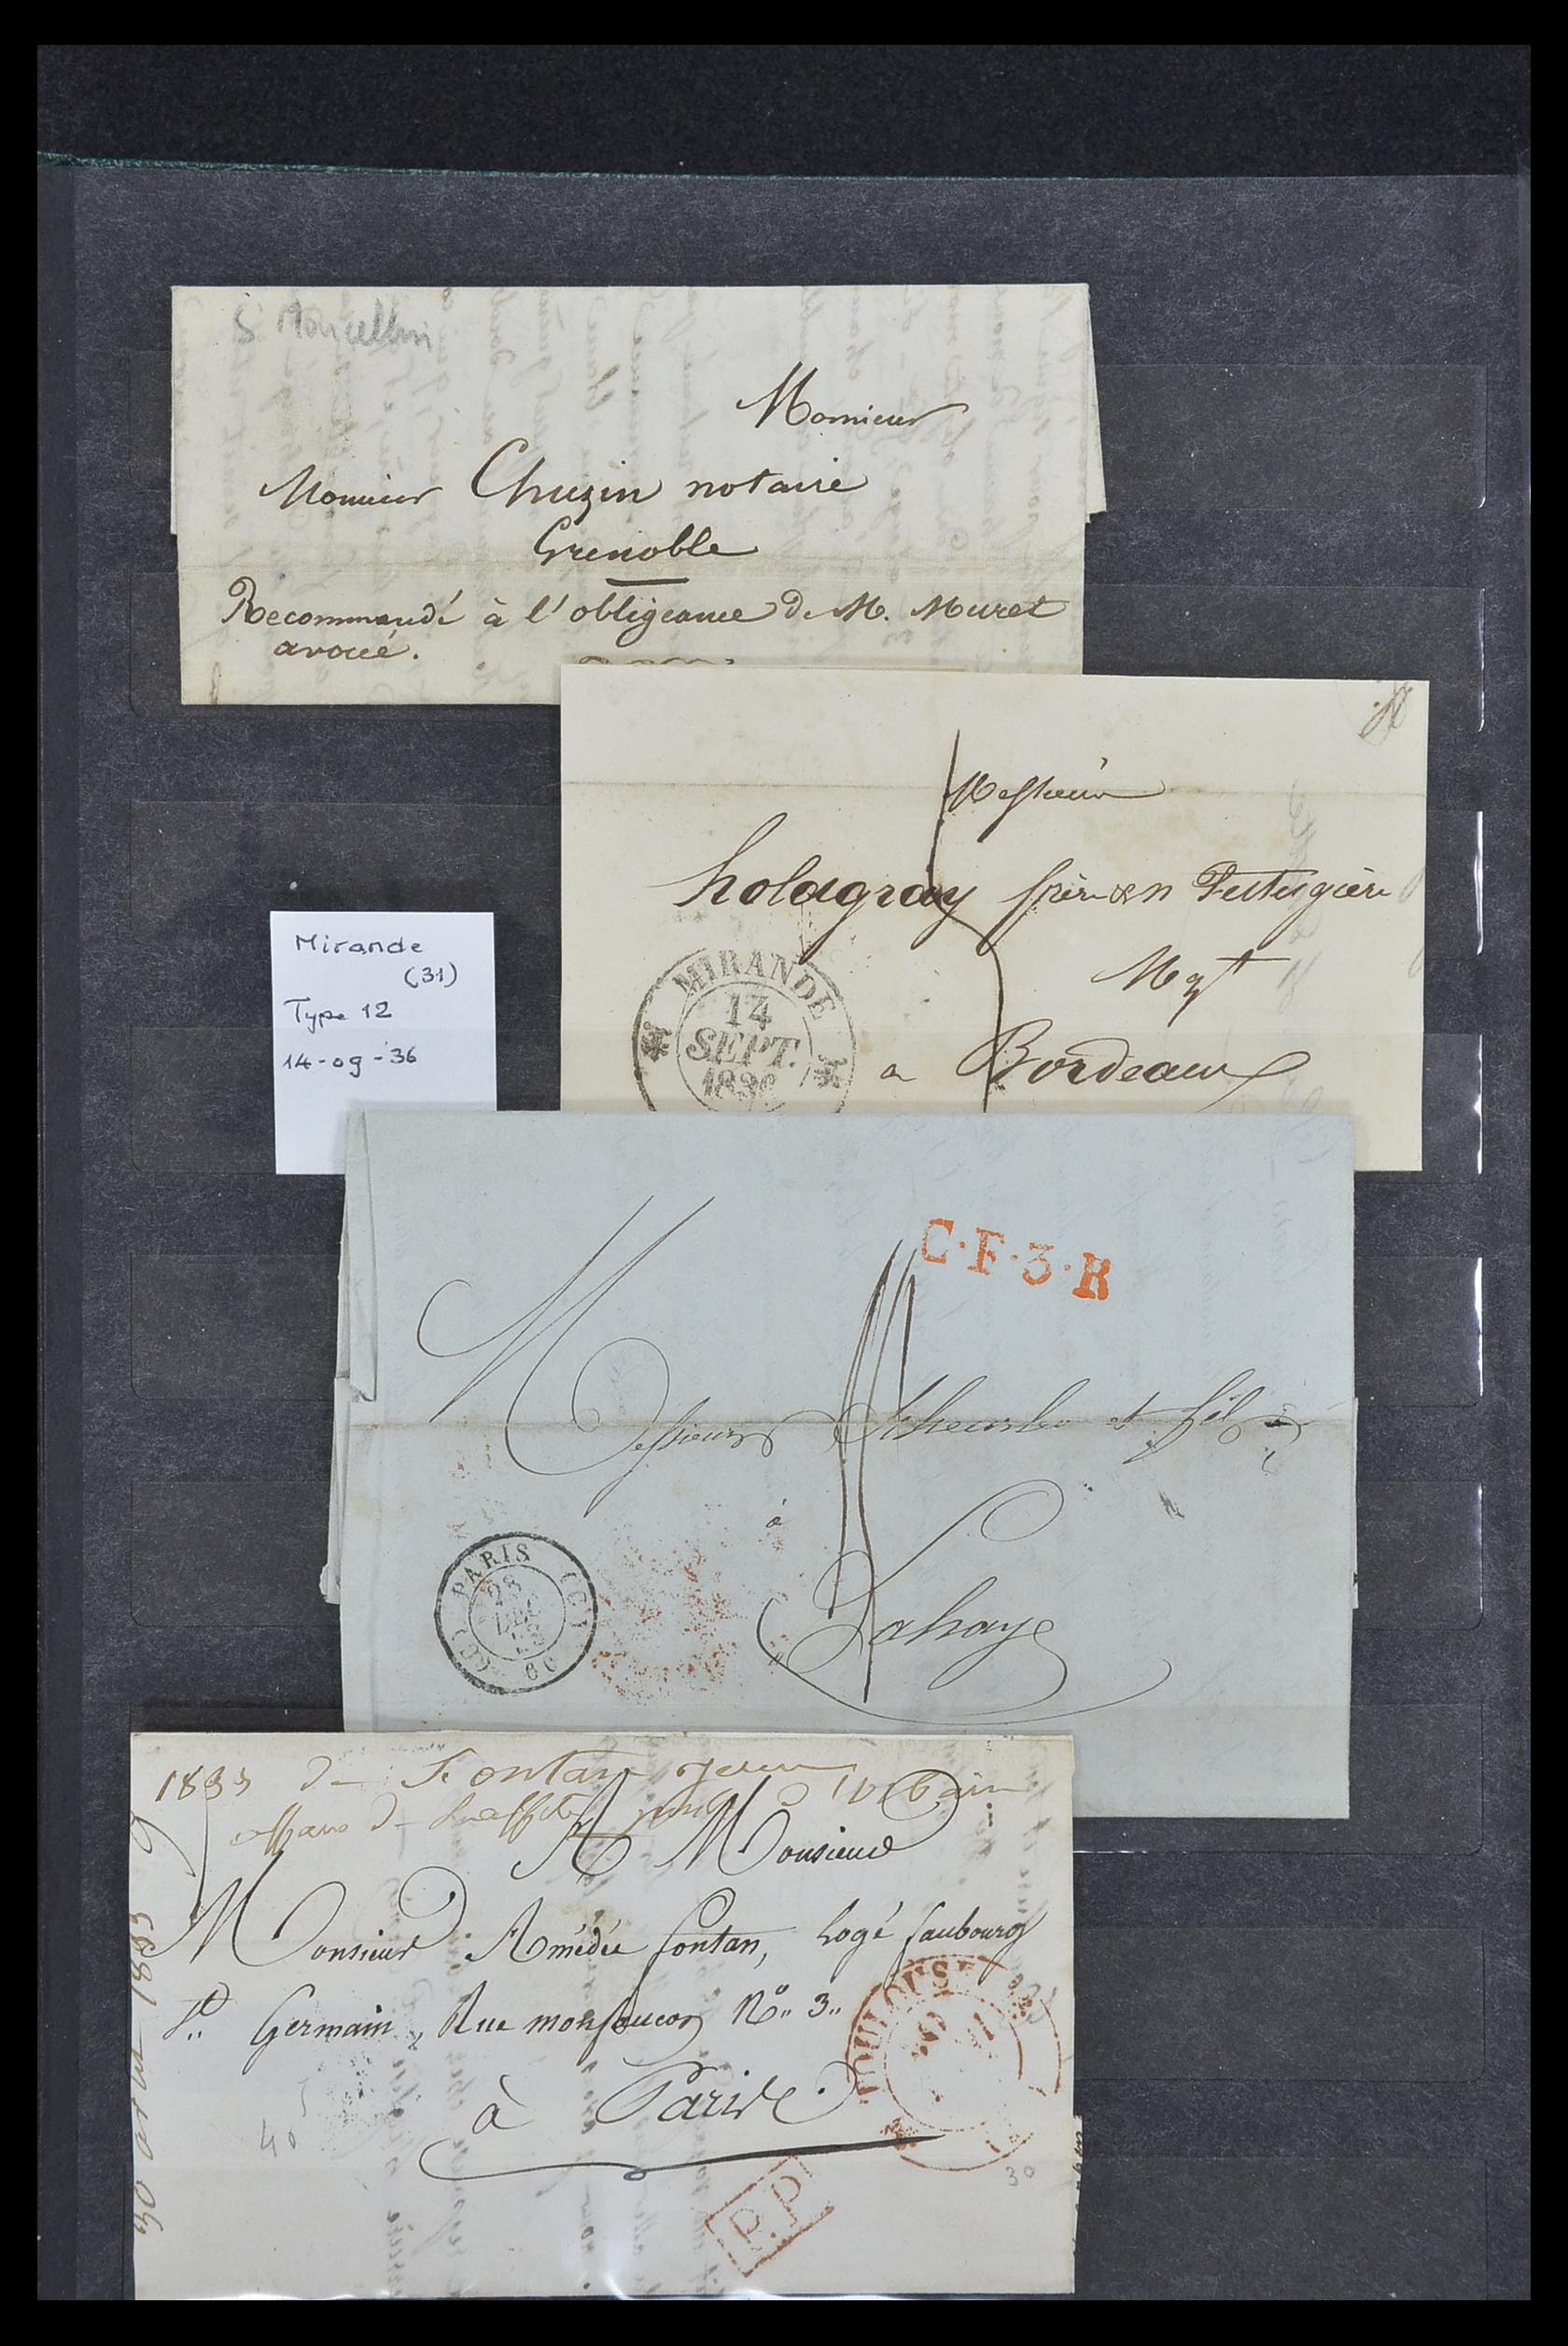 S Marcellin
Monsieur
Monsieur Chuzin notaire
Grenoble
Recommandé à l'obligeance de M. Muret
avoué.
Messieurs
frères
à Bordeaux
MIRANDE
14
SEPT.
1836
Mirande
(31)
Type 12
14-09-36
C.F.3.R
Messieurs et fils
à
Lahaye
PARIS
28
DEC
(60)
1833 de Fontan
A Monsieur
Monsieur Amédée fontan, Logé faubourg
St Germain, Rue monfaucon No 3
à Paris
TOULOUSE
30 avril 1833
40
30
P.P